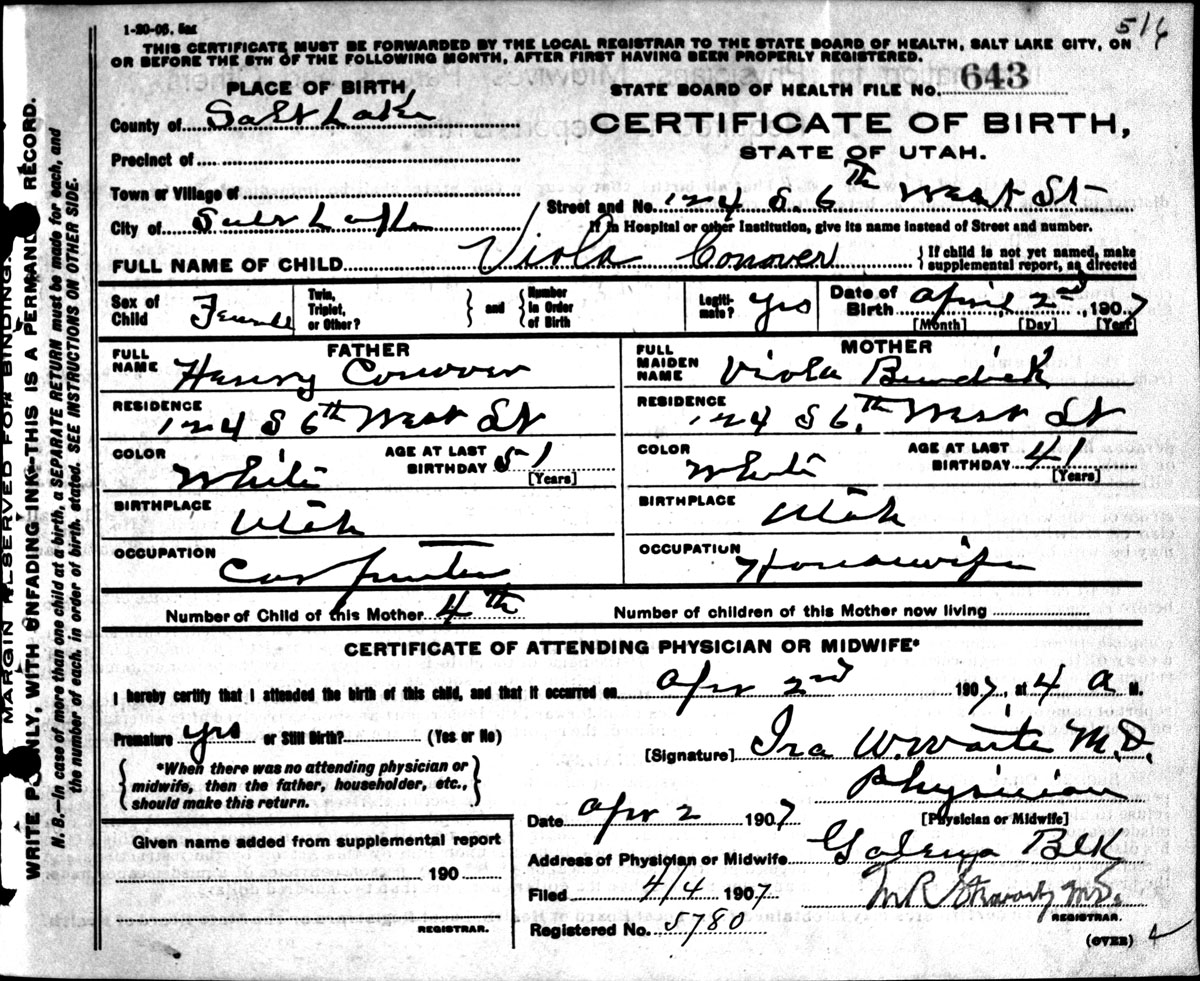 1-20-06, 5m
516
THIS CERTIFICATE MUST BE FORWARDED BY THE LOCAL REGISTRAR TO THE STATE BOARD OF HEALTH, SALT LAKE CITY, ON
OR BEFORE THE 5TH OF THE FOLLOWING MONTH, AFTER FIRST HAVING BEEN PROPERLY REGISTERED.
PLACE OF BIRTH,
STATE BOARD OF HEALTH FILE NO. 643
County of Salt Lake
CERTIFICATE OF BIRTH,
STATE OF UTAH.
Precinct of
Town or Village of
Street and No. 124 S. 6th West St
City of Salt Lake
If in Hospital or other Institution, give its name instead of Street and number.
FULL NAME OF CHILD Viola Conover
{If child is not yet named, make
supplemental report, as directed
Sex of Child Female
Twin, Triplet, or Other? } and { Number in Order of Birth
Legitimate? yes
Date of Birth April, 2nd, 1907
[Month] [Day] [Year]
FATHER
FULL NAME Henry Conover
RESIDENCE 124 S 6th West St
COLOR White
AGE AT LAST BIRTHDAY 51
[Years]
BIRTHPLACE Utah
OCCUPATION Carpenter
MOTHER
FULL MAIDEN NAME Viola Burdick
RESIDENCE 124 S 6th West St
COLOR White
AGE AT LAST BIRTHDAY 41
[Years]
BIRTHPLACE Utah
OCCUPATION Housewife
Number of Child of this Mother 4th
Number of children of this Mother now living
CERTIFICATE OF ATTENDING PHYSICIAN OR MIDWIFE*
I hereby certify that I attended the birth of this child, and that it occurred on Apr 2nd 1907, at 4 A M.
Premature yes or Still Birth? (Yes or No)
[Signature] Ira W. Waite M.D.
{*When there was no attending physician or
midwife, then the father, householder, etc.,
should make this return.}
Physician
[Physician or Midwife]
Date Apr 2 1907
Given name added from supplemental report
190
REGISTRAR.
Address of Physician or Midwife Galena Blk
Filed 4/4 1907
M R Stewart MD.
REGISTRAR.
Registered No. 5780
(OVER)
MARGIN RESERVED FOR BINDING
WRITE PLAINLY, WITH UNFADING INK-THIS IS A PERMANENT RECORD.
N. B.-In case of more than one child at a birth, a SEPARATE RETURN must be made for each, and
the number of each, in order of birth, stated. SEE INSTRUCTIONS ON OTHER SIDE.